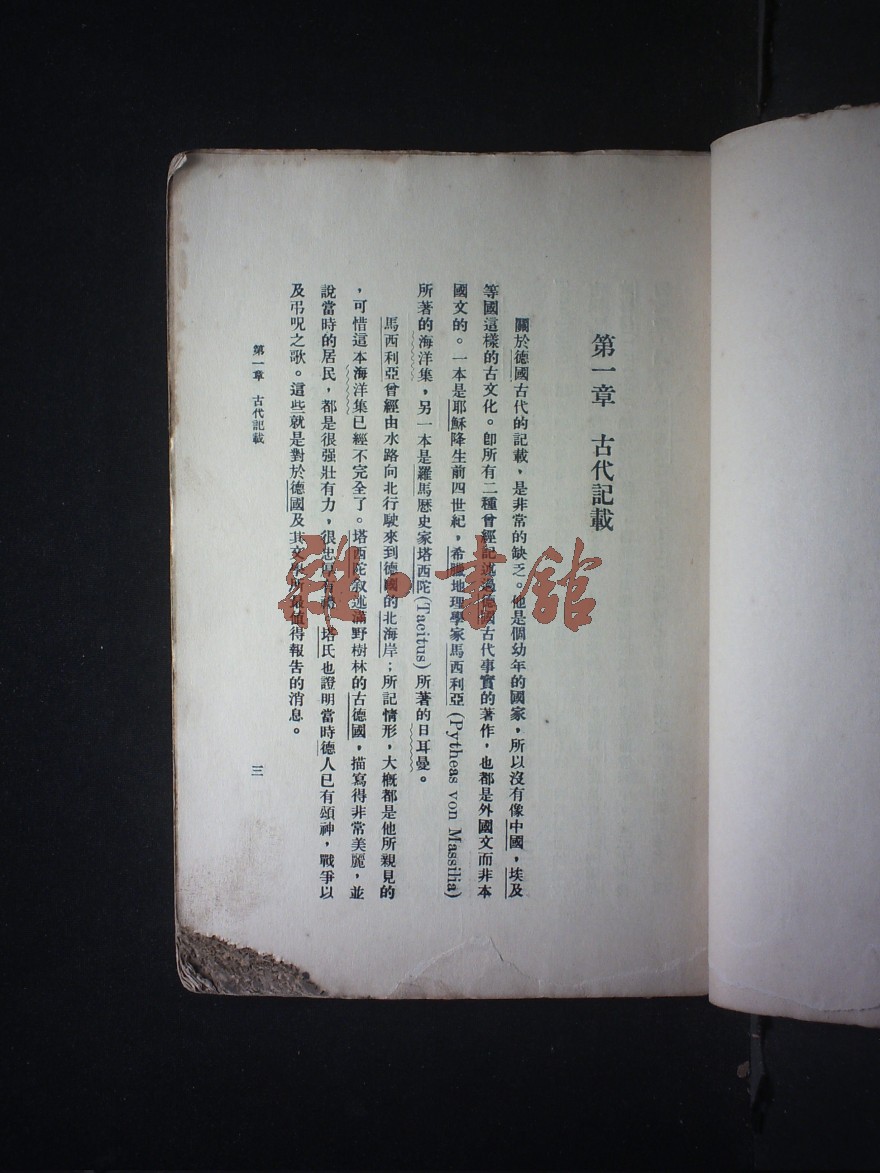 第一章 古代記載
關於德國古代的記載，是非常的缺乏。他是個幼年的國家，所以沒有像中國，埃及
等國這樣的古文化。卽所有二種曾經記述過德國古代事實的著作，也都是外國文而非本
國文的。一本是耶穌降生前四世紀，希臘地理學家馬西利亞(Pytheas von Massilia)
所著的海洋集，另一本是羅馬歷史家塔西陀(Tacitus)所著的日耳曼。
馬西利亞曾經由水路向北行駛來到德國的北海岸；所記情形，大概都是他所親見的
，可惜這本海洋集已經不完全了。塔西陀叙述滿野樹林的古德國，描寫得非常美麗，並
說當時的居民，都是很强壯有力，很忠厚有禮，塔氏也證明當時德人已有頌神，戰爭以
及弔呪之歌。這些就是對於德國及其文學所最值得報告的消息。
第一章 古代記載
三
雜·書館